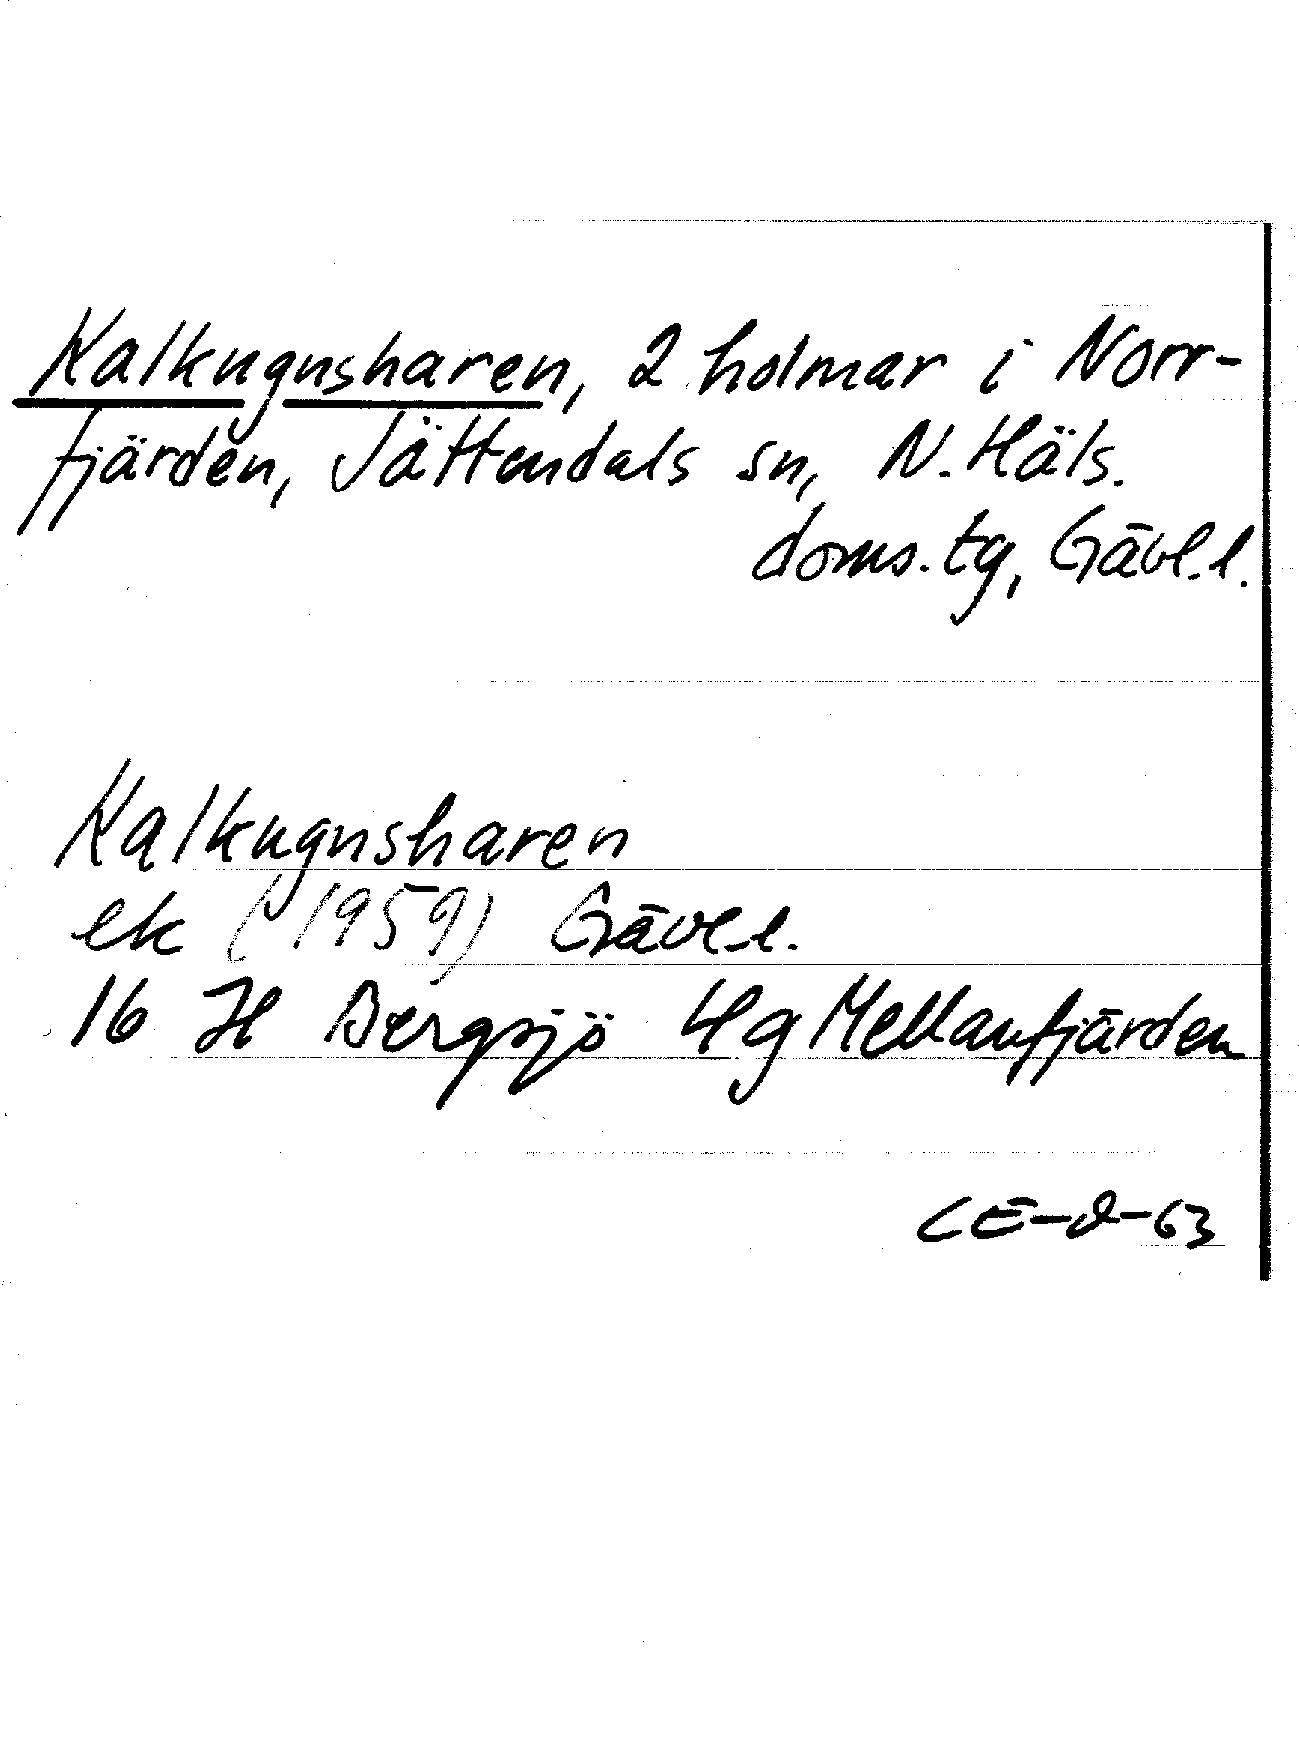 Kalkugnsharen, 2 holmar i Norr-
fjärden, Jättendals sn, N. Häls.
doms. tg, Gävl. l.
Kalkugnsharen
ek (1959) Gävl. l.
16 H Bergsjö 4g Mellanfjärden
CE-D-63